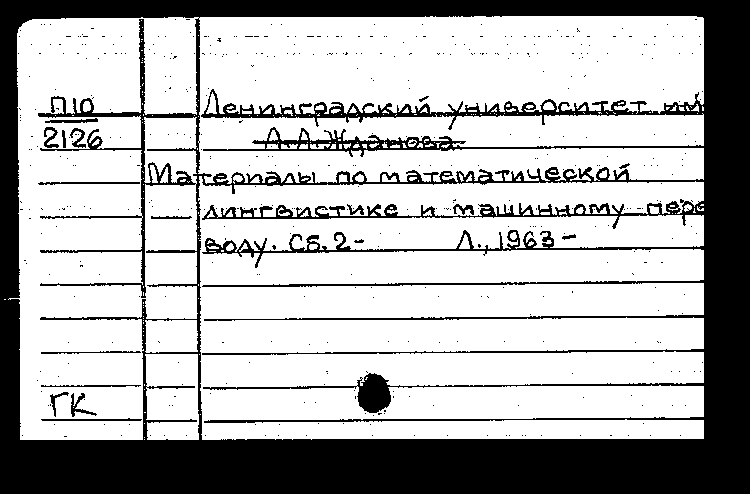 П10
2126
Ленинградский университет им
А.А.Жданова.
Материалы по математической
лингвистике и машинному пере
воду. Сб. 2- Л., 1963-
ГК